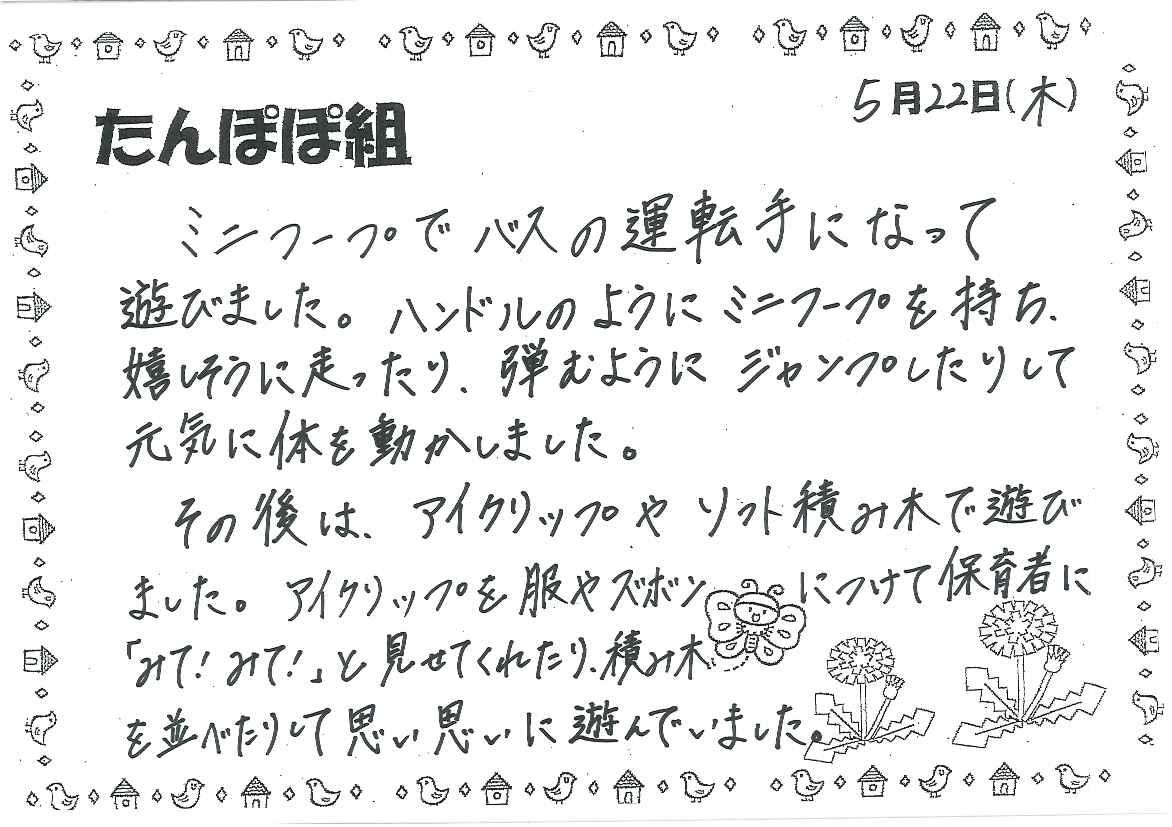 5月22日(木)
たんぽぽ組
ミニフープでバスの運転手になって
遊びました。ハンドルのようにミニフープを持ち、
嬉しそうに走ったり、弾むようにジャンプしたりして
元気に体を動かしました。
その後は、アイクリップやソフト積み木で遊び
ました。アイクリップを服やズボンにつけて保育者に
「みて!みて!」と見せてくれたり、積み木
を並べたりして思い思いに遊んでいました。